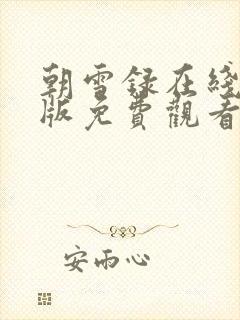 朝雪録在綫
版免費觀看
安雨心